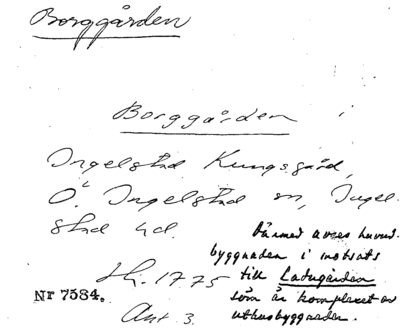 Borggården
Borggården i
Ingelstad Kungsgård,
Ö. Ingelstad sn, Ingel-
stad hd.
Därmed avses huvud-
byggnaden i motsats
till Ladugården
som är komplexet av
uthusbyggnader.
Hi. 1775
Nr 7584.
Ant 3.